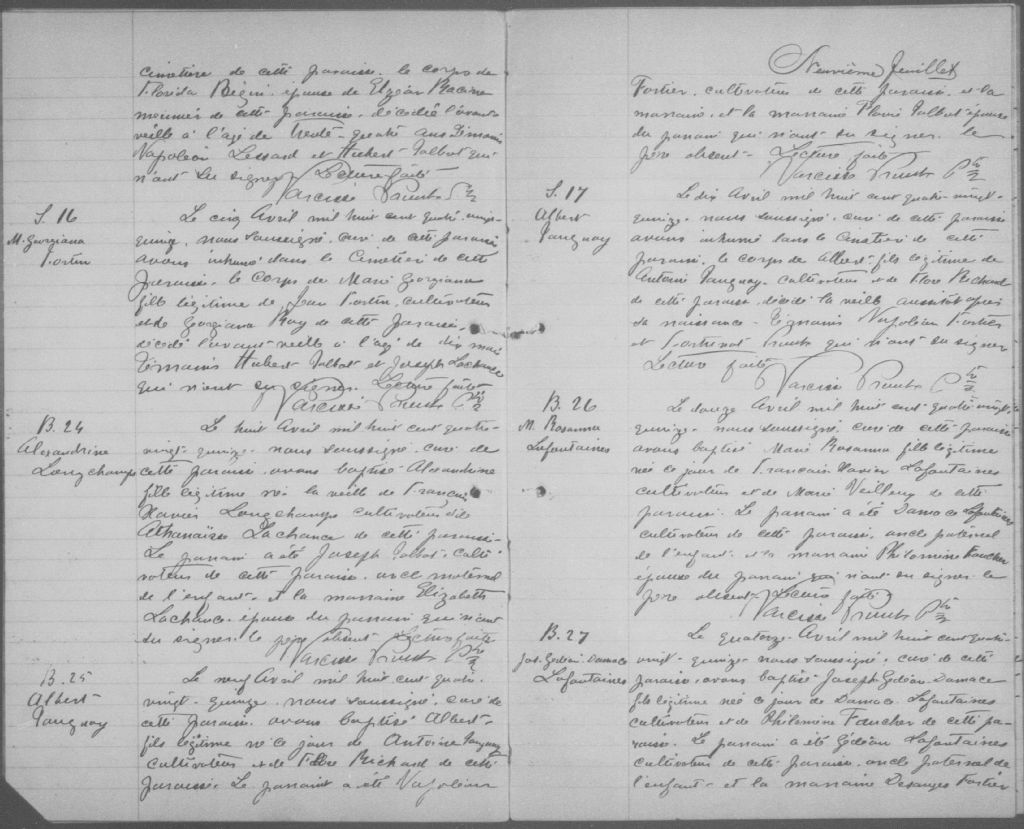 cimetière de cette paroisse le corps de
Florida Bégin, épouse de Elzéar Racine
meunier de cette paroisse, décédée l'avant
veille à l'âge de trente-quatre ans Témoins
Napoléon Lessard et Hubert Talbot qui
n'ont su signer Lecture faite
Narcisse Proulx Ptre
S. 16
M. Georgiana
Fortin
Le cinq Avril mil huit cent quatre-vingt-
quinze, nous soussigné, curé de cette paroisse
avons inhumé dans le Cimetière de cette
paroisse, le corps de Marie Georgiana
fille légitime de Jean Fortin, cultivateur
et de Georgiana Roy de cette paroisse,
décédé l'avant-veille à l'âge de dix mois
Témoins Hubert Talbot et Joseph Lachance
qui n'ont su signer. Lecture faite
Narcisse Proulx Ptre
B. 24
Alexandrine
Longchamps
Le huit Avril mil huit cent quatre-
vingt-quinze, nous soussigné, curé de
cette paroisse avons baptisé Alexandrine
fille légitime née la veille de François
Xavier Longchamps cultivateur et de
Athanaïse Lachance de cette paroisse.
Le parrain a été Joseph Talbot, culti-
vateur de cette paroisse, oncle maternel
de l'enfant, et la marraine Elizabeth
Lachance, épouse du parrain qui n'ont
su signer. le père absent Lecture faite
Narcisse Proulx Ptre
B. 25
Albert
Tanguay
Le neuf Avril mil huit cent quatre-
vingt-quinze, nous soussigné, curé de
cette paroisse, avons baptisé Albert-
fils légitime né ce jour de Antoine Tanguay
cultivateur et de Flore Richard de cette
paroisse. Le parrain a été Napoléon
Neuvième feuillet
Fortier, cultivateur de cette paroisse, et la
marraine, et la marraine Flavie Talbot épouse
du parrain qui n'ont su signer. le
père absent- Lecture faite
Narcisse Proulx Ptre
S. 17
Albert
Tanguay
Le dix Avril mil huit cent quatre-vingt-
quinze, nous soussigné, curé de cette paroisse
avons inhumé dans le Cimetière de cette
paroisse, le corps de Albert-fils légitime de
Antoine Tanguay, cultivateur et de Flore Richard
de cette paroisse, décédé la veille aussitôt après
sa naissance- Témoins Napoléon Fortier
et Proulx qui n'ont su signer
Lecture faite
Narcisse Proulx Ptre
B. 26
M. Rosanna
Lafontaines
Le douze Avril mil huit cent quatre-vingt-
quinze, nous soussigné, curé de cette paroisse
avons baptisé Marie Rosanna fille légitime
née ce jour de Francois Xavier Lafontaines
cultivateur et de Marie Veilleux de cette
paroisse. Le parrain a été Damace Lafontaines
cultivateur de cette paroisse, oncle paternel
de l'enfant, et la marraine Philomène Faucher
épouse du parrain qui n'ont su signer. le
père absent- Lecture faite
Narcisse Proulx Ptre
B. 27
Jos. Gédéon Damace
Lafontaines
Le quatorze Avril mil huit cent quatre-
vingt-quinze nous soussigné, curé de cette
paroisse, avons baptisé Joseph Gédéon Damace
fils légitime né ce jour de Damace Lafontaines
cultivateur et de Philomène Faucher de cette pa-
roisse. Le parrain a été Gédéon Lafontaines
cultivateur de cette paroisse, oncle paternel de
l'enfant, et la marraine Desanges Fortier